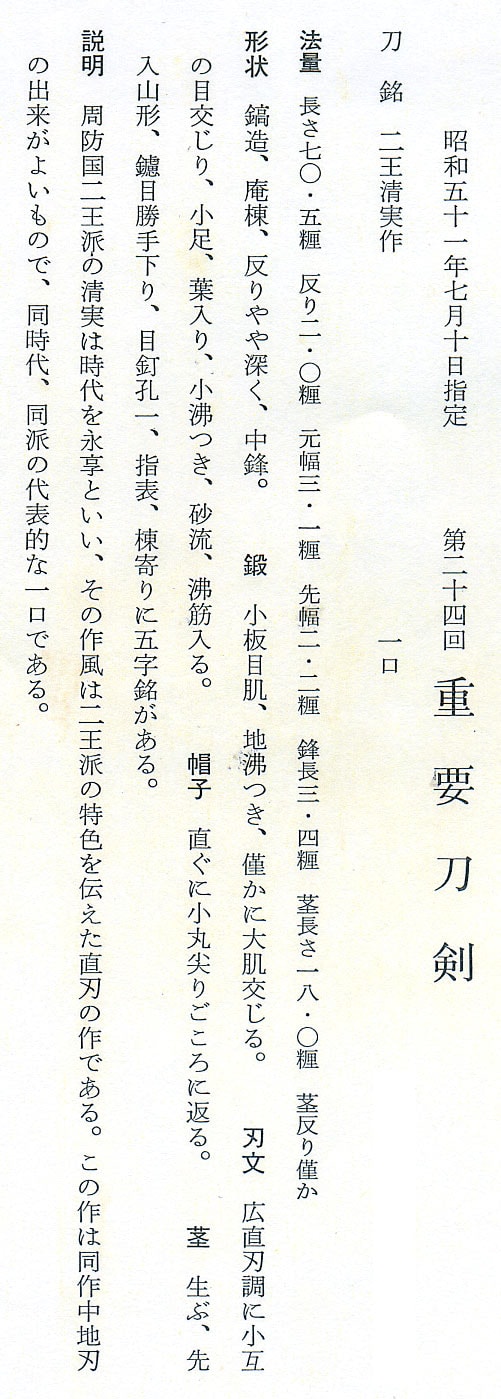 昭和五十一年七月十日指定　第二十四回　重要刀剣
刀　銘　二王清実作　一口
法量　長さ七〇・五糎　反り二・〇糎　元幅三・一糎　先幅二・二糎　鋒長三・四糎　茎長さ一八・〇糎　茎反り僅か
形状　鎬造、庵棟、反りやや深く、中鋒。　鍛　小板目肌、地沸つき、僅かに大肌交じる。　刃文　広直刃調に小互
の目交じり、小足、葉入り、小沸つき、砂流、沸筋入る。　帽子　直ぐに小丸尖りごころに返る。　茎　生ぶ、先
入山形、鑢目勝手下り、目釘孔一、指表、棟寄りに五字銘がある。
説明　周防国二王派の清実は時代を永享といい、その作風は二王派の特色を伝えた直刃の作である。この作は同作中地刃
の出来がよいもので、同時代、同派の代表的な一口である。